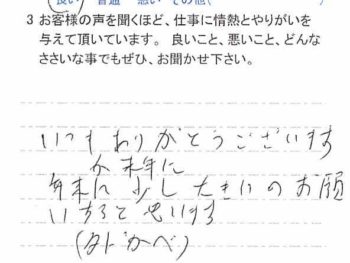 良い 普通 悪い その他(
3 お客様の声を聞くほど、仕事に情熱とやりがいを
与えて頂いています。良いこと、悪いこと、どんな
ささいな事でもぜひ、お聞かせ下さい。
いつもありがとうございます
か来年に
年末に少し大きいのお願
いすると思います
(外かべ)